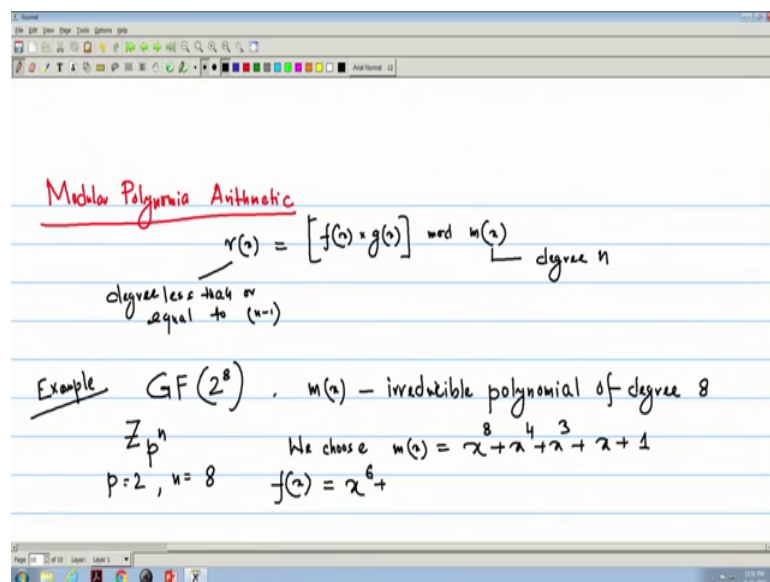 Journal
File Edit View Page Tools Options Help
Arial Normal 12
Modular Polynomia Arithmetic
r(x) = [f(x) × g(x)] mod m(x)
degree n
degree less than or
equal to (n-1)
Example GF(2⁸) . m(x) – irreducible polynomial of degree 8
Z_pⁿ We choose m(x) = x⁸ + x⁴ + x³ + x + 1
p = 2 , n = 8 f(x) = x⁶ +
Page 10 of 10 Layer: Layer 1